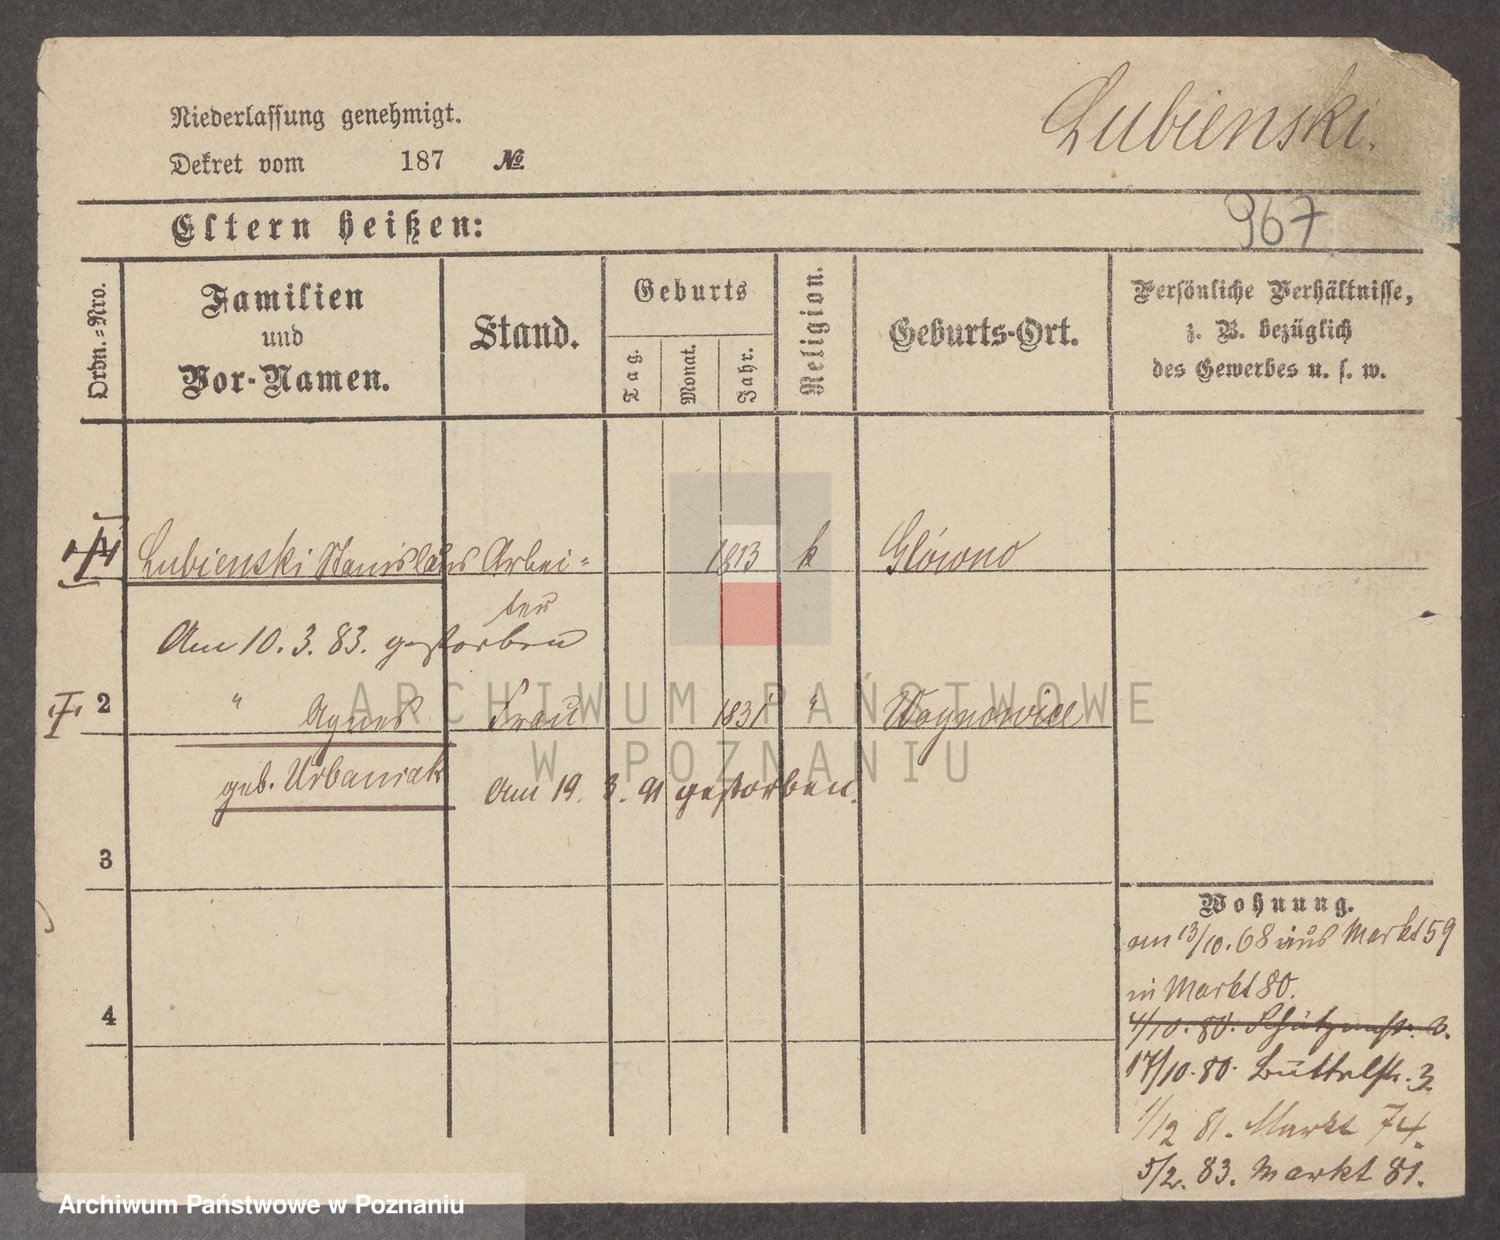 Niederlassung genehmigt.
Lubienski.
Dekret vom 187 №
Eltern heißen:
967
Ordn.=Nro.
Familien
und
Vor-Namen.
Stand.
Geburts
Tag.
Monat.
Jahr.
Religion.
Geburts-Ort.
Persönliche Verhältnisse,
z. B. bezüglich
des Gewerbes u. s. w.
1 Lubienski Stanislaus Arbei=
ter
1813 k Glówno
Am 10. 3. 83. gestorben
2 " Agnes Frau 1831 " Woynowice
geb. Urbaniak Am 19. 3. 91 gestorben.
3
4
Wohnung.
am 13/10. 68 aus Markt 59
in Markt 80.
4/10. 80. Schützenstr. 3.
17/10. 80. Büttelstr. 3.
1/12 81. Markt 74.
5/2. 83. Markt 81.
ARCHIWUM PAŃSTWOWE
W POZNANIU
Archiwum Państwowe w Poznaniu